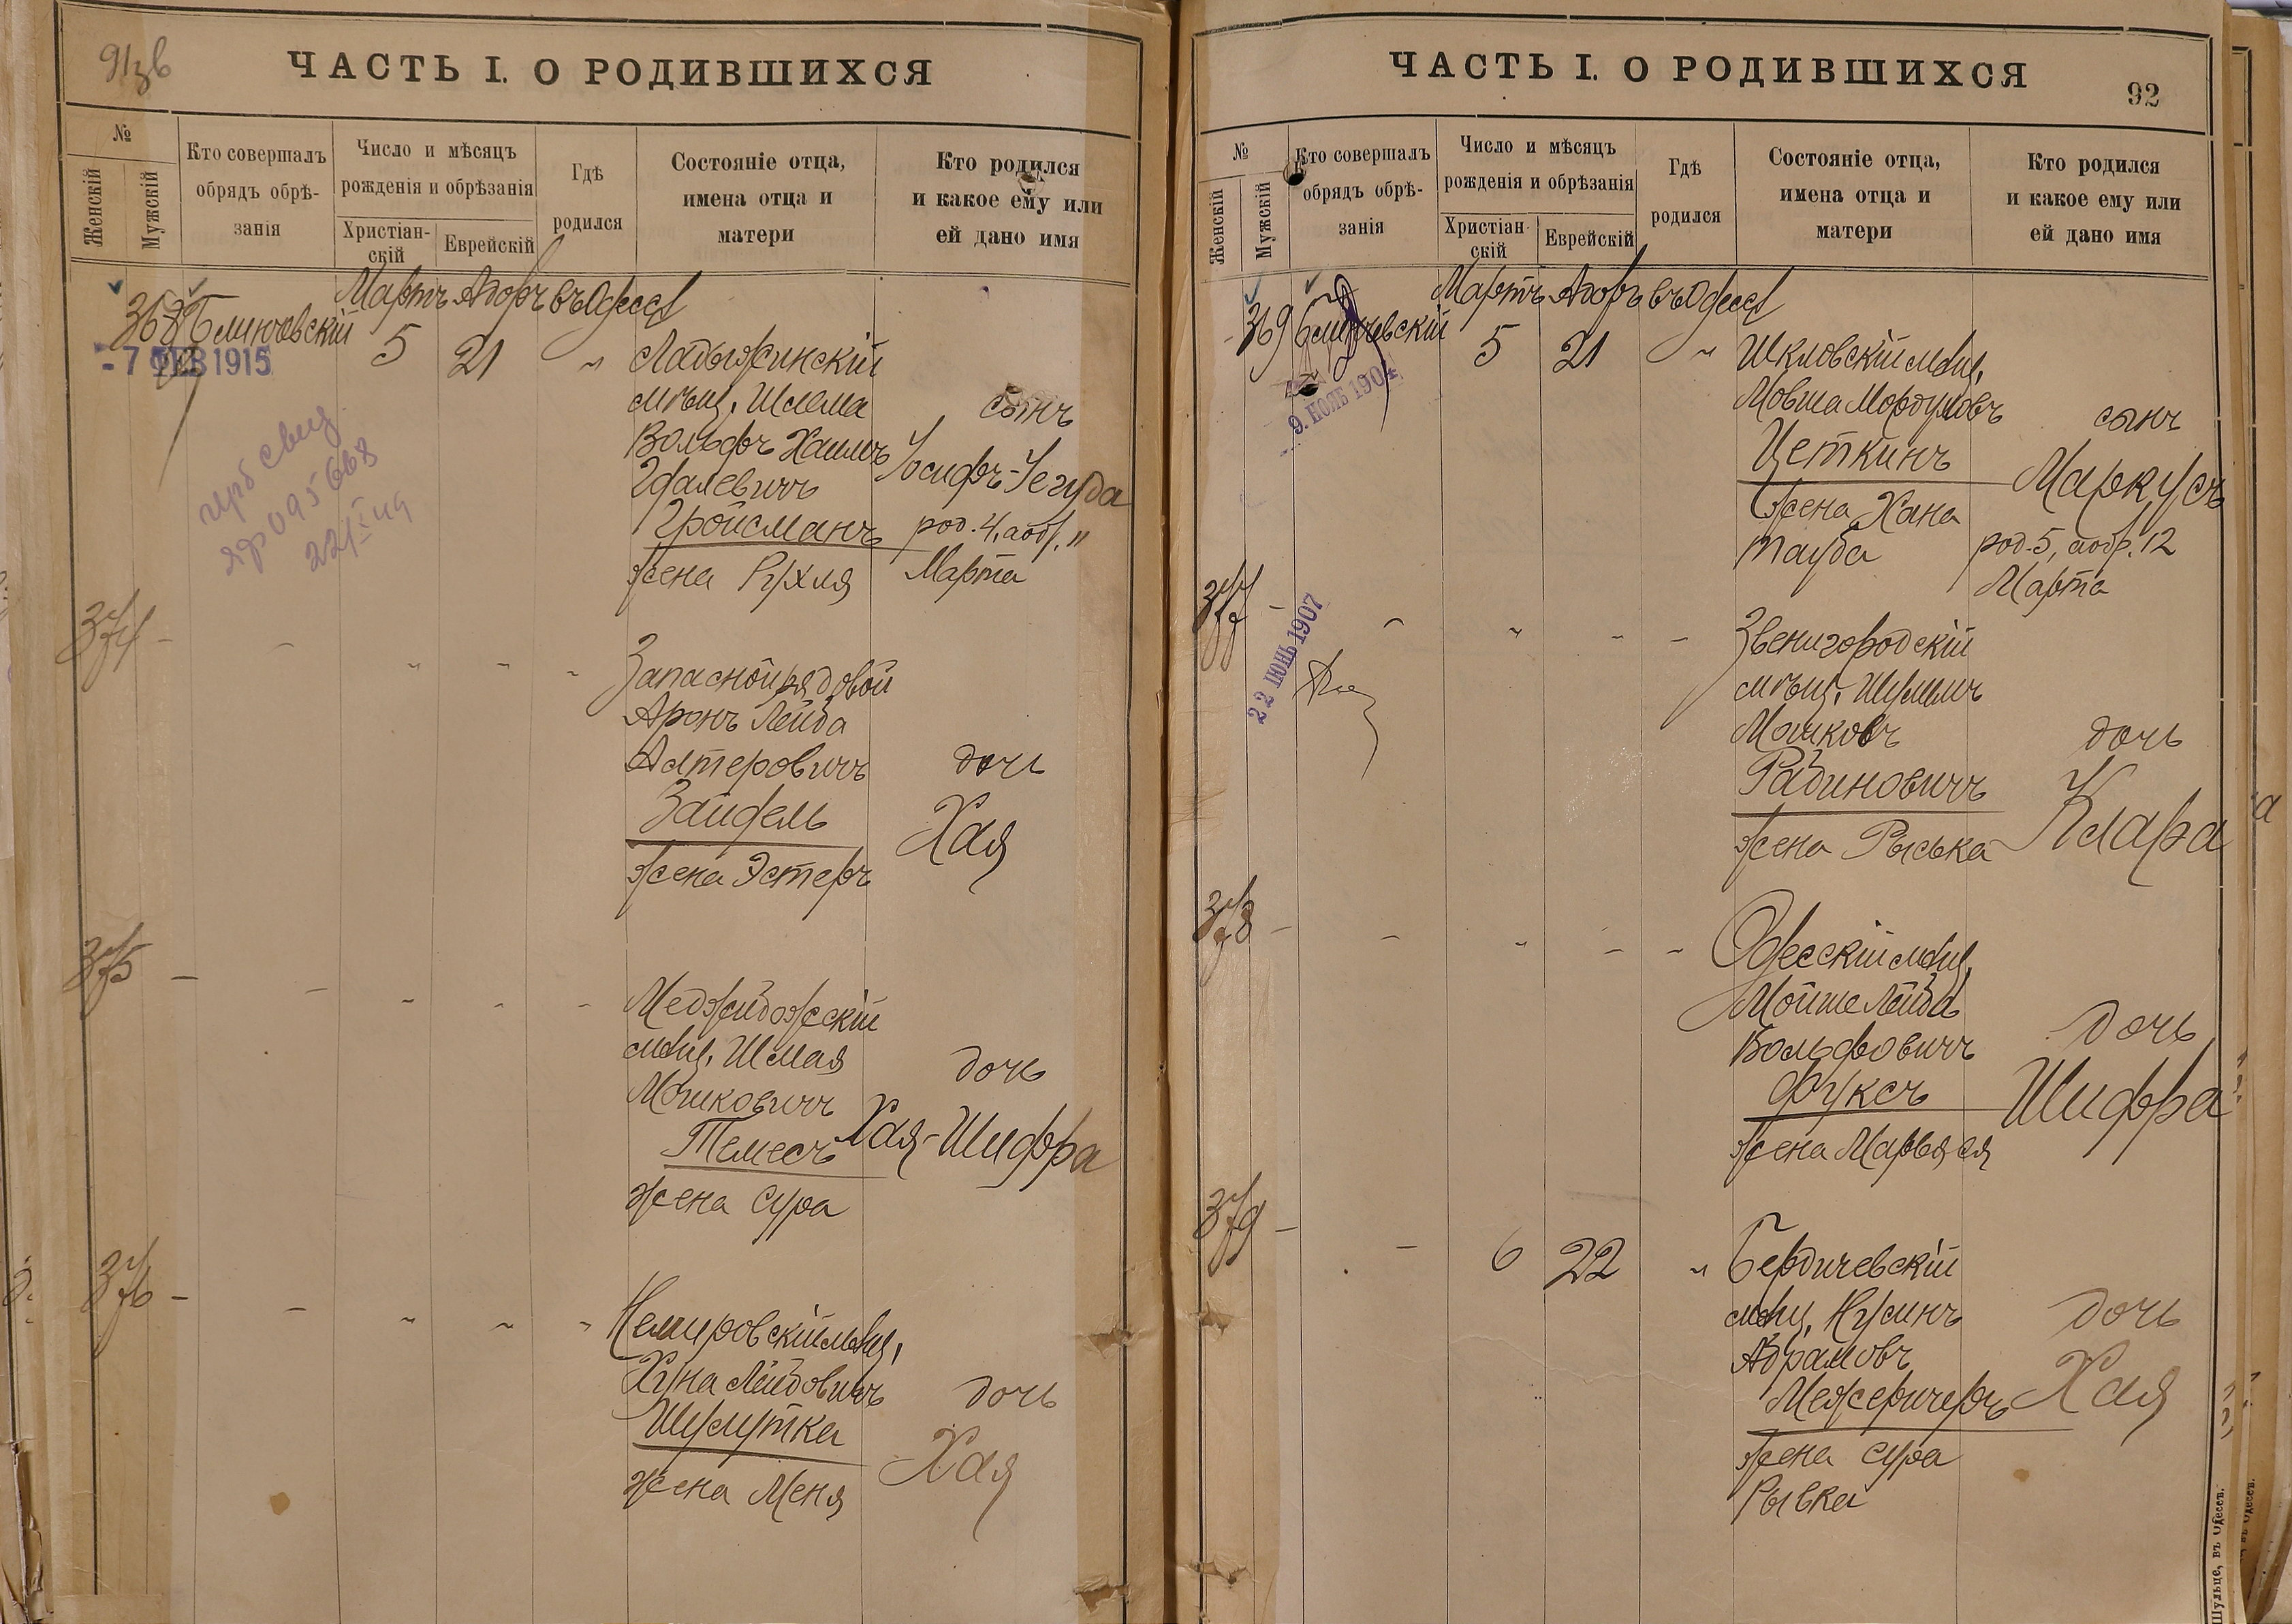 ЧАСТЬ I. О РОДИВШИХСЯ
№
Женскій
Мужскій
Кто совершалъ
обрядъ обрѣ-
занія
Число и мѣсяцъ
рожденія и обрѣзанія
Христіан-
скій
Еврейскій
Гдѣ
родился
Состояніе отца,
имена отца и
матери
Кто родился
и какое ему или
ей дано имя
Мартъ Адаръ въ Одессѣ
368 Блинчевскій 5 21 "
- 7 ФЕВ 1915
Ладыжинскій
мѣщ. Шлема
Вольфъ Хаимъ
Гдалевичъ
Гройсманъ
жена Рухля
сынъ
Іосифъ-Іегуда
род. 4, аобр. 11
Марта
ЯР 095668
374 - - " " "
Запасной рядовой
Аронъ Лейба
Алтеровичъ
Зайфель
жена Эстеръ
дочь
Хая
375 - - " " "
Меджибожскій
мѣщ. Шмая
Мошковичъ
Телесъ
жена Сура
дочь
Хая-Шифра
376 - - " " "
Немировскій мѣщ.
Хуна Лейбовичъ
Шулутка
жена Меня
дочь
Хая
ЧАСТЬ I. О РОДИВШИХСЯ
92
№
Женскій
Мужскій
Кто совершалъ
обрядъ обрѣ-
занія
Число и мѣсяцъ
рожденія и обрѣзанія
Христіан
скій
Еврейскій
Гдѣ
родился
Состояніе отца,
имена отца и
матери
Кто родился
и какое ему или
ей дано имя
Мартъ Адаръ въ Одессѣ
369 Блинчевскій 5 21 "
9. НОЯБ 1904
Шкловскій мѣщ.
Мовша Мордуховъ
Цеткинъ
жена Хана
Тауба
сынъ
Маркусъ
род. 5, аобр. 12
Марта
377 - - " - -
22 ІЮНЬ 1907
Звенигородскій
мѣщ. Шулимъ
Мошковъ
Рабиновичъ
жена Рыська
дочь
Клара
378 - - " - -
Одесскій мѣщ.
Мойше Лейба
Вольфовичъ
Фуксъ
жена Марьяся
дочь
Шифра
379 - - 6 22 "
Бердичевскій
мѣщ. Нусинъ
Абрамовъ
Межеричеръ
жена Сура
Рывка
дочь
Хая
Шульце, въ Одессѣ.